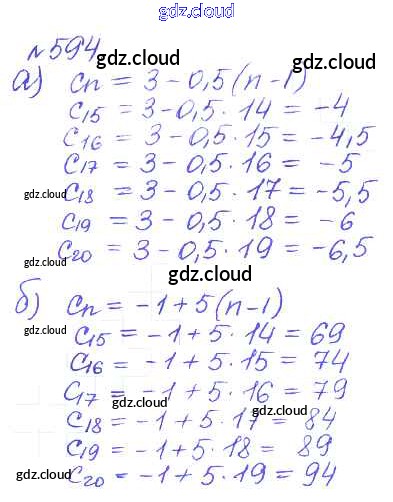 gdz.cloud
№594
gdz.cloud
а) Cn = 3 - 0,5(n-1)
C15 = 3 - 0,5 · 14 = -4
gdz.cloud gdz.cloud
C16 = 3 - 0,5 · 15 = -4,5
C17 = 3 - 0,5 · 16 = -5
gdz.cloud C18 = 3 - 0,5 · 17 = -5,5
C19 = 3 - 0,5 · 18 = -6
C20 = 3 - 0,5 · 19 = -6,5
gdz.cloud gdz.cloud
gdz.cloud
б) Cn = -1 + 5(n-1)
gdz.cloud
C15 = -1 + 5 · 14 = 69
C16 = -1 + 5 · 15 = 74
gdz.cloud
C17 = -1 + 5 · 16 = 79
gdz.cloud gdz.cloud
C18 = -1 + 5 · 17 = 84
C19 = -1 + 5 · 18 = 89
gdz.cloud C20 = -1 + 5 · 19 = 94 gdz.cloud